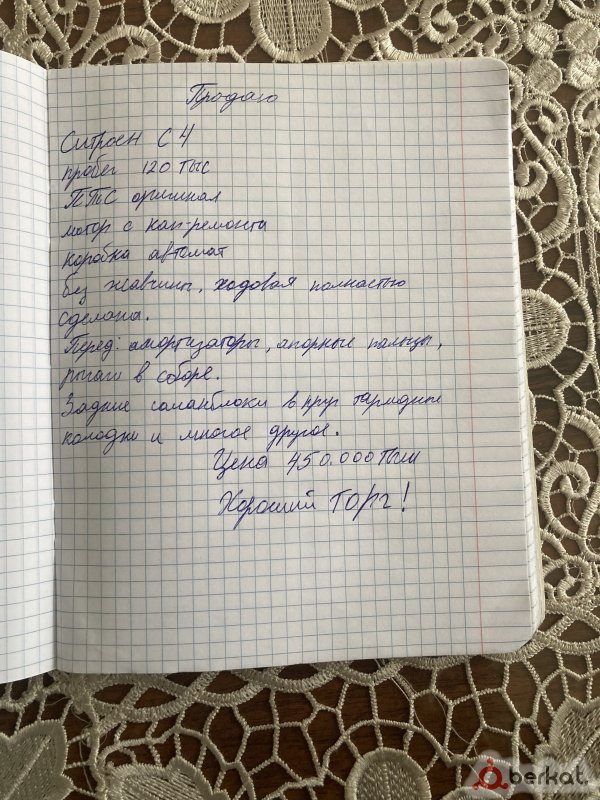 Продаю
Ситроен С 4
пробег 120 тыс
ПТС оригинал
мотор с кап-ремонта
коробка автомат
без жавчины, ходовая полностью
сделана.
Перед: амортизаторы, апорные пальцы,
рычаги в сборе.
Задние саланблоки в круг тармазные
калодки и многое другое.
Цена 450.000 тыш
Хороший торг!
berkat.